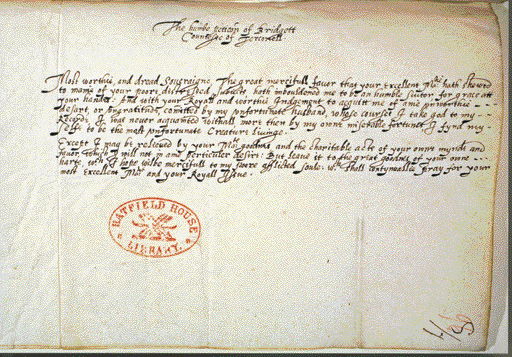 The humble peticion of Bridgett
Countesse of Tirconell
Most worthie and dread Soveraigne. The great mercifull favor that your Excellent Matie hath shewed
to manie of your poore distressed subjects hath imboldened me to be an humble suitor for grace att
your handes. And with your Royall and worthie Judgement to acquitt me of anie privie
desart or Ingratitude comitted by my unfortunate husband, whose courses I take god to my
Record, I was never aquainted withall more then by my owne miserable fortunes I fynd my
selfe to be the most unfortunate Creature livinge.
Except I may be releived by your Maties goodnes and the charitable acte of your owne mynde and
favor, which I will not in anie perticuler desire: But leave it to the great goodnes of your owne
hart, wch I hope wilbe mercifull to my poore afflicted soule: wch shall contynuallie pray for your
most excellent Matie and your Royall Issue.
HATFIELD HOUSE
LIBRARY